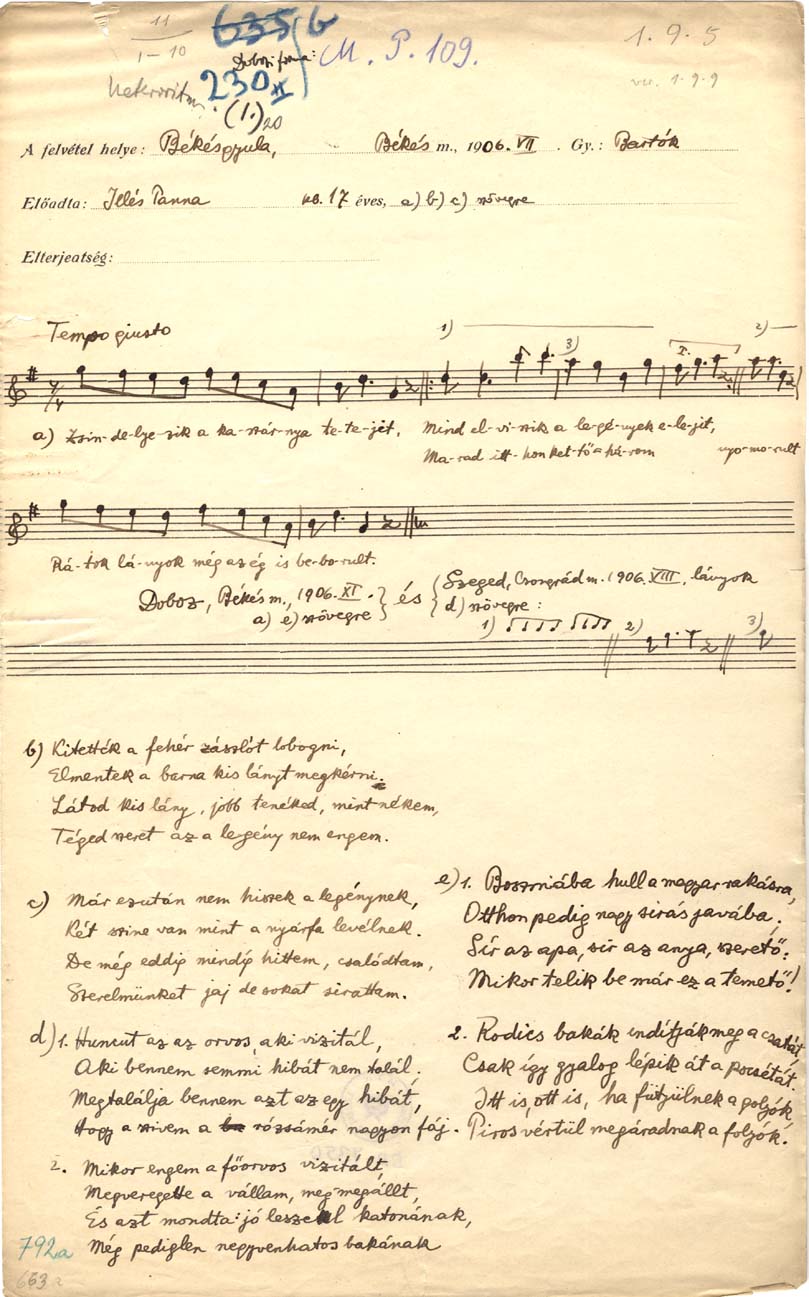 11
1-10
635/b
Dobozi fona:
M. P. 109.
1. 9. 5
var. 1-9-9
230 XI
(1.) 20
A felvétel helye: Békésgyula, Békés m., 1906. VII. Gy.: Bartók
Előadta: Illés Panna kb. 17 éves, a) b) c) szövegre
Elterjeatség:
Tempo giusto
1) 3) 2)
a) Zsin-de-lye-zik a ka-szár-nya te-te-jét, Mind el-vi-szik a le-gé-nyek e-le-jit,
Ma-rad itt-hon ket-tő-há-rom nyo-mo-rult
Rá-tok lá-nyok még az ég is be-bo-rult.
Doboz, Békés m., 1906. XI. a) e) szövegre } és { Szeged, Csongrád m. 1906. VIII. lányok
d) szövegre:
1) 2) 3)
b) Kitették a fehér zászlót lobogni,
Elmentek a barna kis lányt megkérni.
Látod kis lány, jobb tenéked, mint nékem,
Téged szeret az a legény nem engem.
c) Már ezután nem hiszek a legénynek,
Két szine van mint a nyárfa levélnek.
De még eddig mindíg hittem, csalódtam,
Szerelmünket jaj de sokat sirattam.
d) 1. Huncut az az orvos, aki vizitál,
Aki bennem semmi hibát nem talál.
Megtalálja bennem azt az egy hibát,
Hogy a szivem a rózsámér nagyon fáj.
2. Mikor engem a főorvos vizitált,
Megveregette a vállam, meg megállt,
És azt mondta: jó leszel katonának,
Még pediglen negyvenhatos bakának
e) 1. Boszniába hull a magyar rakásra,
Otthon pedig nagy sirás javába,
Sír az apa, sir az anya, szerető:
Mikor telik be már ez a temető!
2. Rodics bakák indítják meg a csatát,
Csak így gyalog lépik át a pocsétát.
Itt is, ott is, ha fütyülnek a golyók,
Piros vértül megáradnak a folyók.
792a
663a